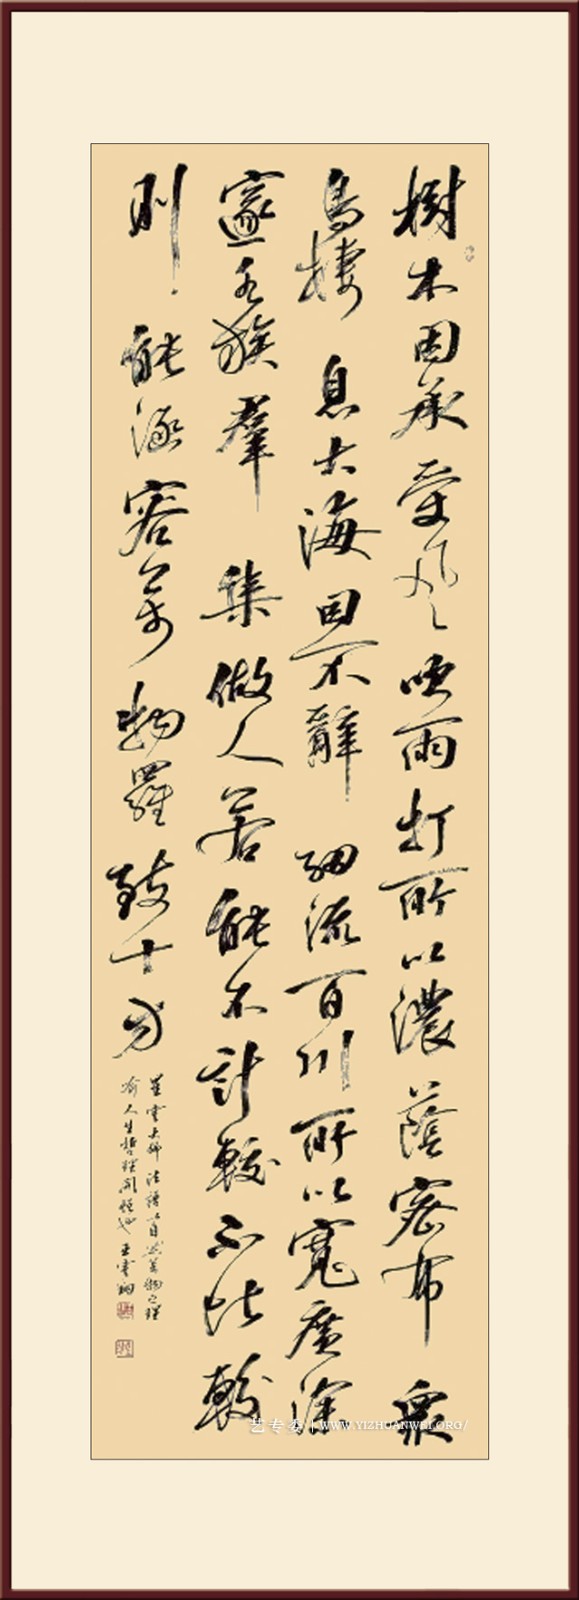 樹木因承受風吹雨打所以濃蔭密布眾
鳥棲息大海因不辭細流百川所以寬廣深
邃水族群集做人若能不計較不比較
則能涵容萬物羅致十方
星雲大師法語以自然萬物之理
喻人生哲理開悟也
艺专委 | WWW.YIZHUANWEI.ORG/